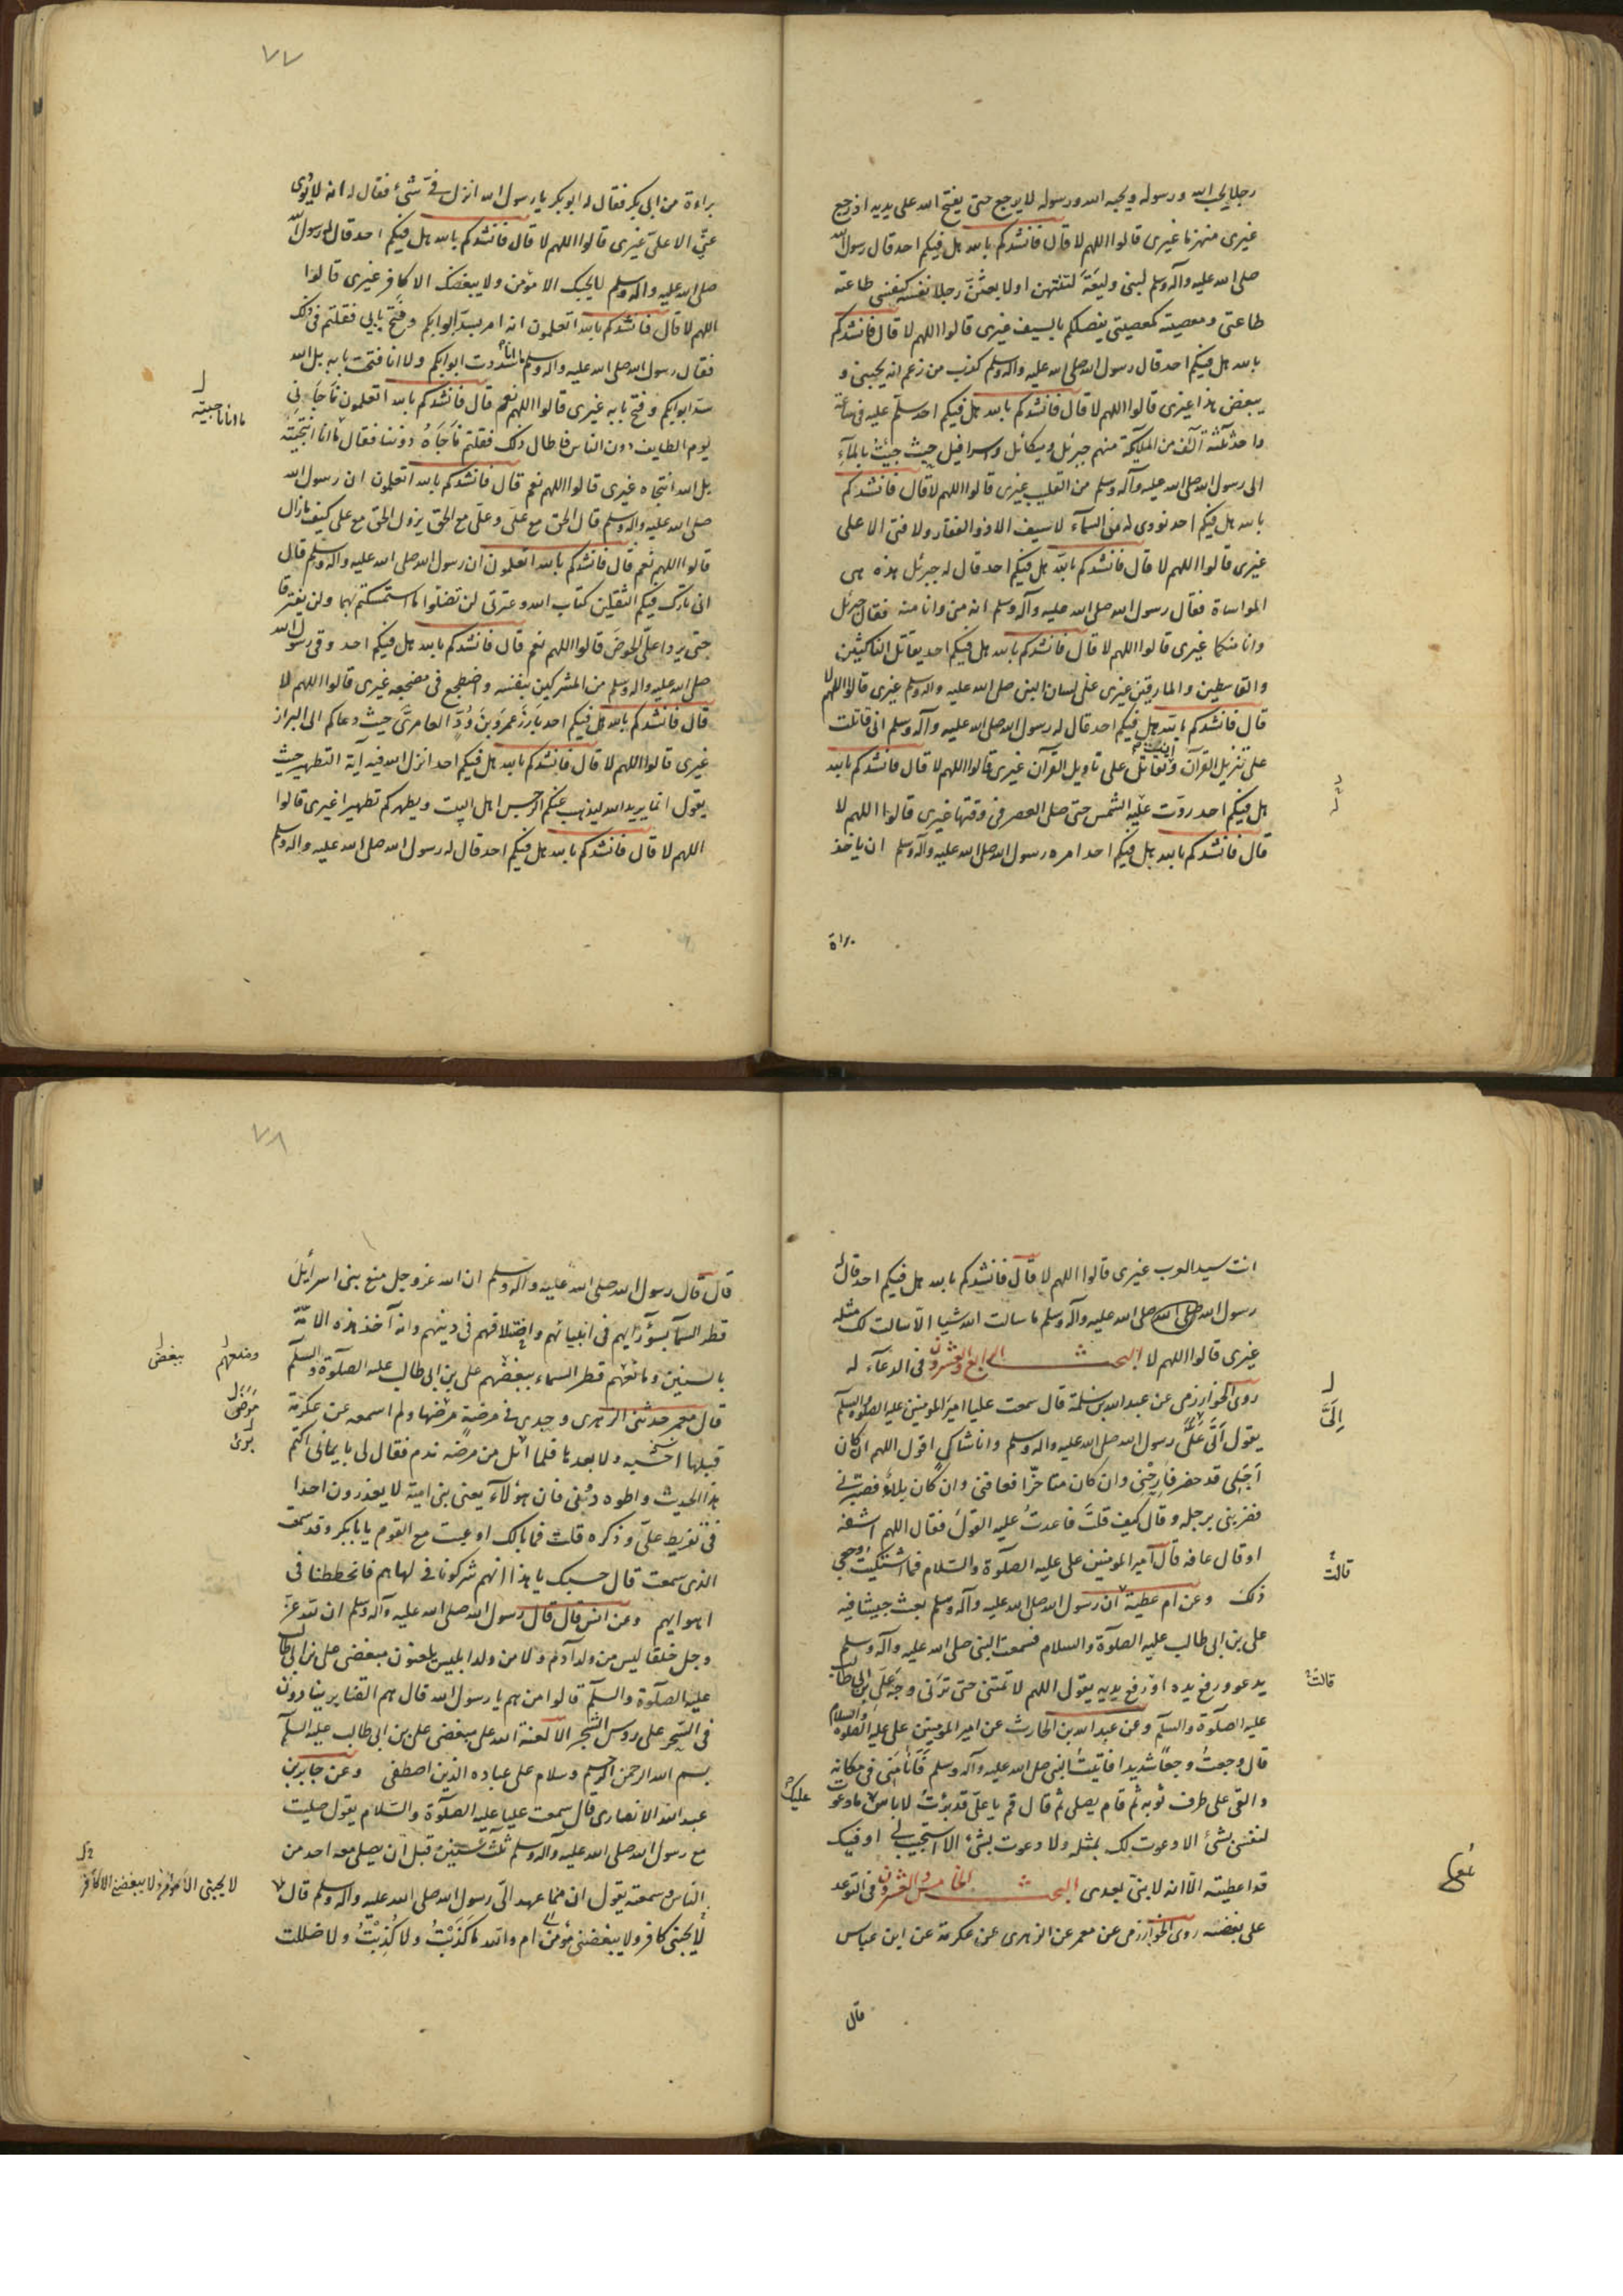 رجلا يحب الله ورسوله ويحبه الله ورسوله لا يرجع حتى يفتح الله على يديه اذ رجع
غيرى منهزما غيرى قالوا اللهم لا قال فانشدكم بالله هل فيكم احد قال رسول الله
صلى الله عليه وآله وسلم لبنى وليعة لتنتهن او لابعثن رجلا نفسه كنفسى طاعته
طاعتى ومعصيته كمعصيتى يفصلكم بالسيف غيرى قالوا اللهم لا قال فانشدكم
بالله هل فيكم احد قال رسول الله صلى الله عليه وآله وسلم كذب من زعم انه يحبنى و
يبغض هذا غيرى قالوا اللهم لا قال فانشدكم بالله هل فيكم احد سلم عليه فى ساعة
واحدة ثلثة آلف من الملئكة منهم جبرئل وميكائل واسرافيل حيث جئت بالمآء
الى رسول الله صلى الله عليه وآله وسلم من القليب غيرى قالوا اللهم لا قال فانشدكم
بالله هل فيكم احد نودى له من السمآء لا سيف الا ذو الفقار ولا فتى الا على
غيرى قالوا اللهم لا قال فانشدكم بالله هل فيكم احد قال له جبرئل هذه هى
المواساة فقال رسول الله صلى الله عليه وآله وسلم انه منى وانا منه فقال جبرئل
وانا منكما غيرى قالوا اللهم لا قال فانشدكم بالله هل فيكم احد يقاتل الناكثين
والقاسطين والمارقين غيرى على لسان النبى صلى الله عليه وآله وسلم غيرى قالوا اللهم لا
قال فانشدكم بالله هل فيكم احد قال له رسول الله صلى الله عليه وآله وسلم انى قاتلت
على تنزيل القرآن وتقاتل انت على تاويل القرآن غيرى قالوا اللهم لا قال فانشدكم بالله
هل فيكم احد ردت عليه الشمس حتى صلى العصر فى وقتها غيرى قالوا اللهم لا
قال فانشدكم بالله هل فيكم احد امره رسول الله صلى الله عليه وآله وسلم ان ياخذ
براة
٧٧
براءة من ابى بكر فقال له ابو بكر يا رسول الله انزل فى شئ فقال له انه لا يؤدى
عنى الا على غيرى قالوا اللهم لا قال فانشدكم بالله هل فيكم احد قال له رسول الله
صلى الله عليه وآله وسلم لا يحبك الا مؤمن ولا يبغضك الا كافر غيرى قالوا
اللهم لا قال فانشدكم بالله اتعلمون انه امر بسد ابوابكم وفتح بابى فقلتم فى ذلك
فقال رسول الله صلى الله عليه وآله وسلم ما انا سددت ابوابكم ولا انا فتحت بابه بل الله
سد ابوابكم وفتح بابه غيرى قالوا اللهم نعم قال فانشدكم بالله اتعلمون ناجانى
يوم الطايف دون الناس فاطال ذلك فقلتم ناجاه دوننا فقال ما انا انتجيته
ما انا ناجيته
بل الله انتجاه غيرى قالوا اللهم نعم قال فانشدكم بالله اتعلمون ان رسول الله
صلى الله عليه وآله وسلم قال الحق مع على وعلى مع الحق يزول الحق مع على كيف ما زال
قالوا اللهم نعم قال فانشدكم بالله اتعلمون ان رسول الله صلى الله عليه وآله وسلم قال
انى تارك فيكم الثقلين كتاب الله وعترتى لن تضلوا ما استمسكتم بهما ولن يفترقا
حتى يردا على الحوض قالوا اللهم نعم قال فانشدكم بالله هل فيكم احد وقى رسول الله
صلى الله عليه وآله وسلم من المشركين بنفسه واضطجع فى مضجعه غيرى قالوا اللهم لا
قال فانشدكم بالله هل فيكم احد بارز عمرو بن ود العامرى حيث دعاكم الى البراز
غيرى قالوا اللهم لا قال فانشدكم بالله هل فيكم احد انزل الله فيه آية التطهير حيث
يقول انما يريد الله ليذهب عنكم الرجس اهل البيت ويطهركم تطهيرا غيرى قالوا
اللهم لا قال فانشدكم بالله هل فيكم احد قال له رسول الله صلى الله عليه وآله وسلم
انت سيد العرب غيرى قالوا اللهم لا قال فانشدكم بالله هل فيكم احد قال
رسول الله صلى الله صلى الله عليه وآله وسلم ما سالت الله شيا الا سالت لك مثله
غيرى قالوا اللهم لا البحث الرابع والعشرون فى الدعآء له
روى الخوارزمى عن عبد الله بن سلمة قال سمعت عليا امير المومنين عليه الصلوة والسلم
يقول اتى على رسول الله صلى الله عليه وآله وسلم وانا شاكى اقول اللهم ان كان
الى
اجلى قد حضر فارحنى وان كان متاخرا فعافنى وان كان بلاء فصبرنى
فضربنى برجله وقال كيف قلت فاعدت عليه القول فقال اللهم اشفه
او قال عافه قال امير المومنين على عليه الصلوة والسلام فما اشتكيت وجعى
ذلك وعن ام عطية ان رسول الله صلى الله عليه وآله وسلم بعث جيشا فيه
قالت
على بن ابى طالب عليه الصلوة والسلام فسمعت النبى صلى الله عليه وآله وسلم
يدعو ورفع يده او رفع يديه يقول اللهم لا تمتنى حتى ترنى وجه على بن ابى طالب
قالت
عليه الصلوة والسلم وعن عبد الله بن الحارث عن امير المومنين على عليه الصلوة والسلام
قال وجعت وجعا شديدا فاتيت النبى صلى الله عليه وآله وسلم فانامنى فى مكانه
والقى على طرف ثوبه ثم قام يصلى ثم قال قم يا على قد برئت لا باس عليك ما دعوت
لنفسى بشئ الا دعوت لك بمثله ولا دعوت بشئ الا استجيب لى او قيل
قد اعطيته الا انه لا نبى بعدى البحث الخامس والعشرون فى التوعد
على بغضه روى الخوارزمى عن معمر عن الزهرى عن عكرمة عن ابن عباس
قال
٧٨
قال قال رسول الله صلى الله عليه وآله وسلم ان الله عز وجل منع بنى اسرايل
قطر السمآ بسؤ رايهم فى انبيائهم واختلافهم فى دينهم وانه آخذ هذه الامة
بالسنين ومانعهم قطر السماء ببغضهم على بن ابى طالب عليه الصلوة والسلم
ومنعهم ببغض
قال معمر حدثنى الزهرى وحدى فى مرضة مرضها ولم اسمعه عن عكرمة
قبلها احسبه ولا بعدها فلما ابل من مرضه ندم فقال لى يا يمانى اكتم
هذا الحديث واطوه دونى فان هؤلآء يعنى بنى امية لا يعذرون احدا
فى تقريط على وذكره قلت فما بالك اوعبت مع القوم يا بابكر وقد سمعت
الذى سمعت قال حسبك يا هذا انهم شركونا فى لهاهم فانحططنا فى
اهوايهم وعن انس قال قال رسول الله صلى الله عليه وآله وسلم ان لله عز
وجل خلقا ليس من ولد آدم ولا من ولد ابليس يلعنون مبغضى على بن ابى طالب
عليه الصلوة والسلم قالوا من هم يا رسول الله قال هم القنابر ينادون
فى السحر على روس الشجر الا لعنة الله على مبغضى على بن ابى طالب عليه السلم
بسم الله الرحمن الرحيم وسلام على عباده الذين اصطفى وعن جابر بن
عبد الله الانصارى قال سمعت عليا عليه الصلوة والسلام يقول صليت
مع رسول الله صلى الله عليه وآله وسلم ثلث سنين قبل ان يصلى معه احد من
الناس وسمعته يقول ان مما عهد الى رسول الله صلى الله عليه وآله وسلم قال
لا يحبنى الا مؤمن ولا يبغضنى الا كافر
لا يحبنى كافر ولا يبغضنى مؤمن ام والله ما كذبت ولا كذبت ولا ضللت